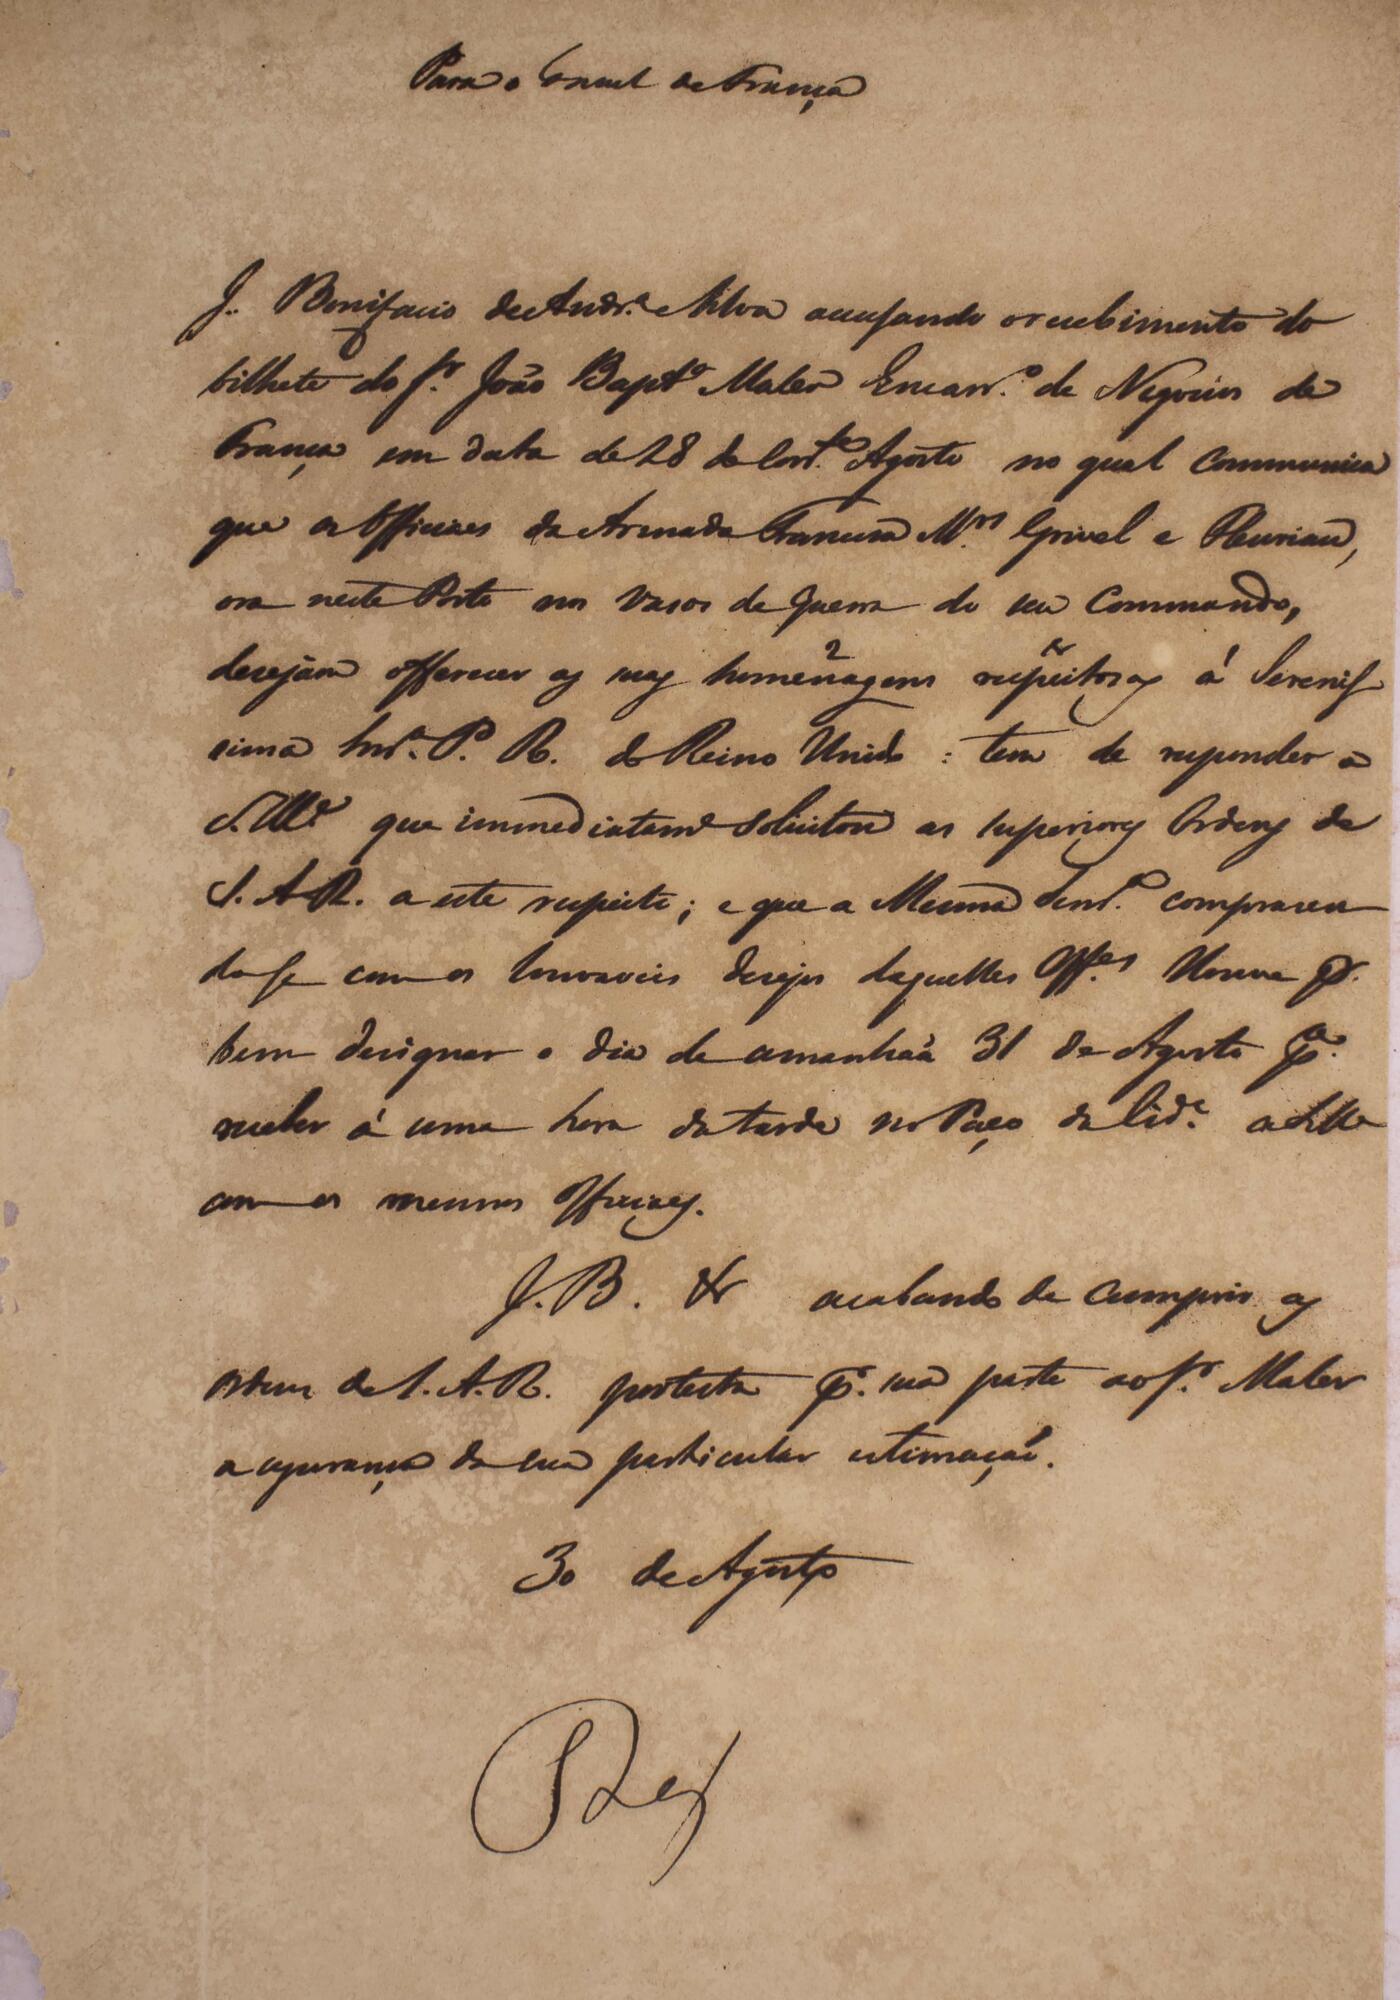 Para o Consul de França
J. Bonifacio de Andr.ᵃ e Silva accusando o recebimento do
bilhete do Sr. João Bapt.ᵃ Maler Encarr.º de Negocios de
França em data de 28 do Corr.ᵗᵉ Agosto no qual communica
que os Officiaes da Armada Franceza M.ʳˢ Grivel e Fleuriau,
ora neste Porto nos Vasos de guerra do seu Commando,
desejão offerecer as suas homenagens respeitosas á Serenis
sima Snr.ᵃ P. R. do Reino Unido : tem de responder a
S. M.ᶜᵉ que immediatam.ᵉ solicitou as superiores Ordens de
S. A. R. a este respeito; e que a Mesma Senr.ᵃ comprazen
do se com os louvaveis desejos daquelles Off.ᵉˢ Houve p.ʳ
bem designar o dia de amanhaã 31 de Agosto p.ᵃ
receber á uma hora da tarde no Paço da Cid.ᵉ a S. M.ᶜᵉ
com os mesmos Officiaes.
J. B. &r acabando de cumprir as
ordens de S. A. R. protesta p.ʳ sua parte ao Sr. Maler
a segurança da sua particular estimação.
30 de Agosto